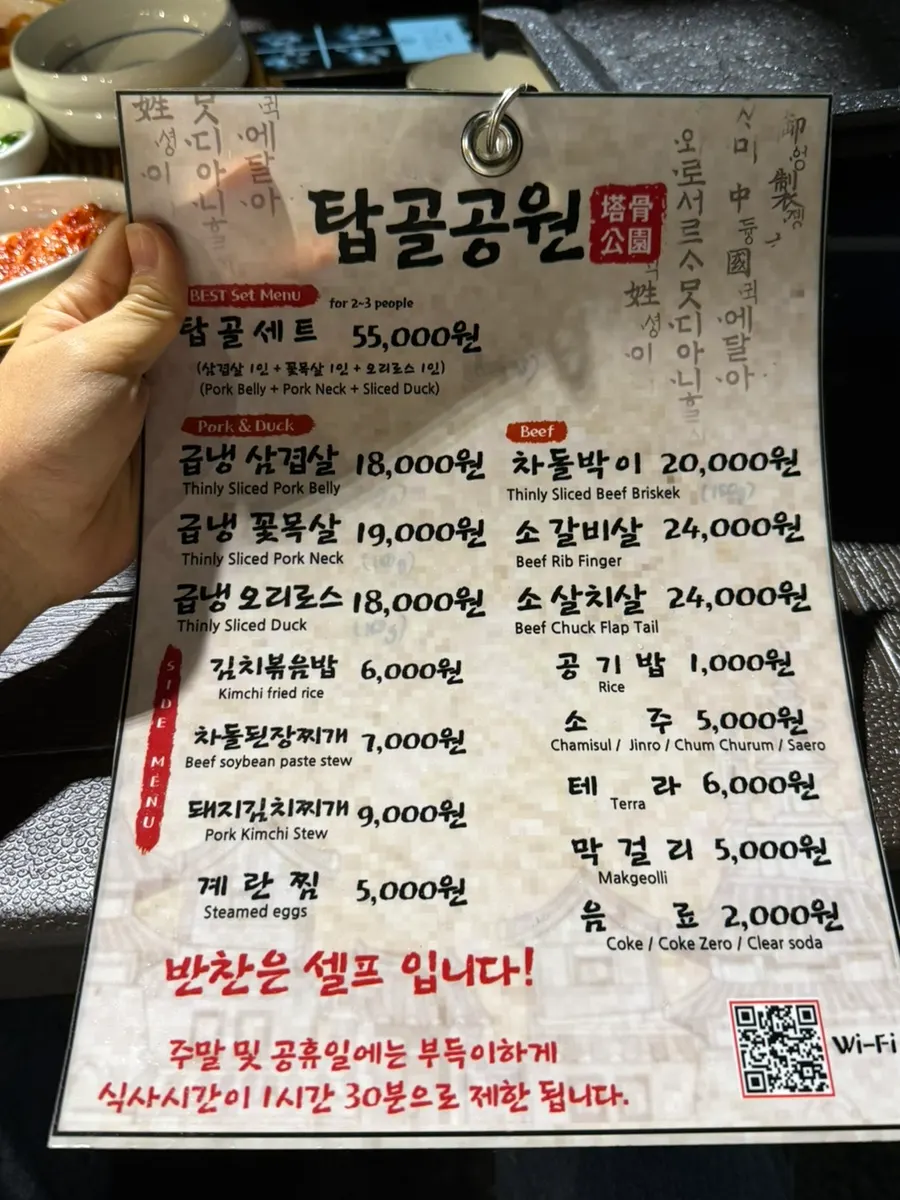 탑골공원 塔骨公園
BEST Set Menu for 2~3 people
탑골세트 55,000원
(삼겹살 1인 + 꽃목살 1인 + 오리로스 1인)
(Pork Belly + Pork Neck + Sliced Duck)
Pork & Duck
급냉 삼겹살 18,000원
Thinly Sliced Pork Belly
급냉 꽃목살 19,000원
Thinly Sliced Pork Neck
급냉 오리로스 18,000원
Thinly Sliced Duck
Beef
차돌박이 20,000원
Thinly Sliced Beef Briskek
소 갈비살 24,000원
Beef Rib Finger
소 살치살 24,000원
Beef Chuck Flap Tail
SIDE MENU
김치볶음밥 6,000원
Kimchi fried rice
차돌된장찌개 7,000원
Beef soybean paste stew
돼지김치찌개 9,000원
Pork Kimchi Stew
계란찜 5,000원
Steamed eggs
공기밥 1,000원
Rice
소주 5,000원
Chamisul / Jinro / Chum Churum / Saero
테라 6,000원
Terra
막걸리 5,000원
Makgeolli
음료 2,000원
Coke / Coke Zero / Clear soda
반찬은 셀프 입니다!
주말 및 공휴일에는 부득이하게
식사시간이 1시간 30분으로 제한 됩니다.
Wi-Fi